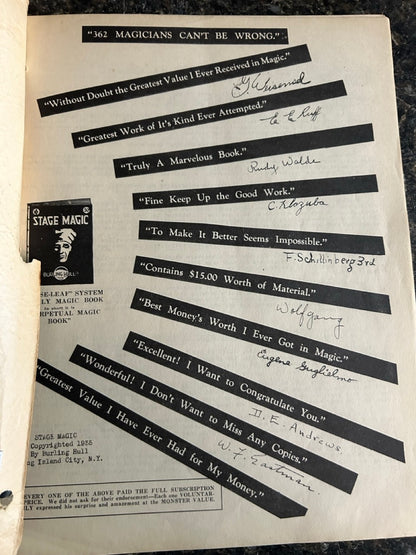 "362 MAGICIANS CAN'T BE WRONG."
"Without Doubt the Greatest Value I Ever Received in Magic."
"Greatest Work of It's Kind Ever Attempted."
E E Ruff
"Truly A Marvelous Book."
Rudy Walde
"Fine Keep Up the Good Work."
C. Klozuba
"To Make It Better Seems Impossible."
F. Schillinberg 3rd
"Contains $15.00 Worth of Material."
Wolfgang
"Best Money's Worth I Ever Got in Magic."
Eugene Guglielmo
"Excellent! I Want to Congratulate You."
D. E. Andrews.
"Wonderful! I Don't Want to Miss Any Copies."
W. F. Eastman.
"Greatest Value I Have Ever Had for My Money."
STAGE MAGIC
BURLING HULL
SE-LEAF" SYSTEM
LY MAGIC BOOK
PETUAL MAGIC
BOOK"
STAGE MAGIC
Copyrighted 1935
By Burling Hull
ng Island City, N.Y.
EVERY ONE OF THE ABOVE PAID THE FULL SUBSCRIPTION
PRICE. We did not ask for their endorsement—Each one VOLUNTAR-
LY expressed his surprise and amazement at the MONSTER VALUE.